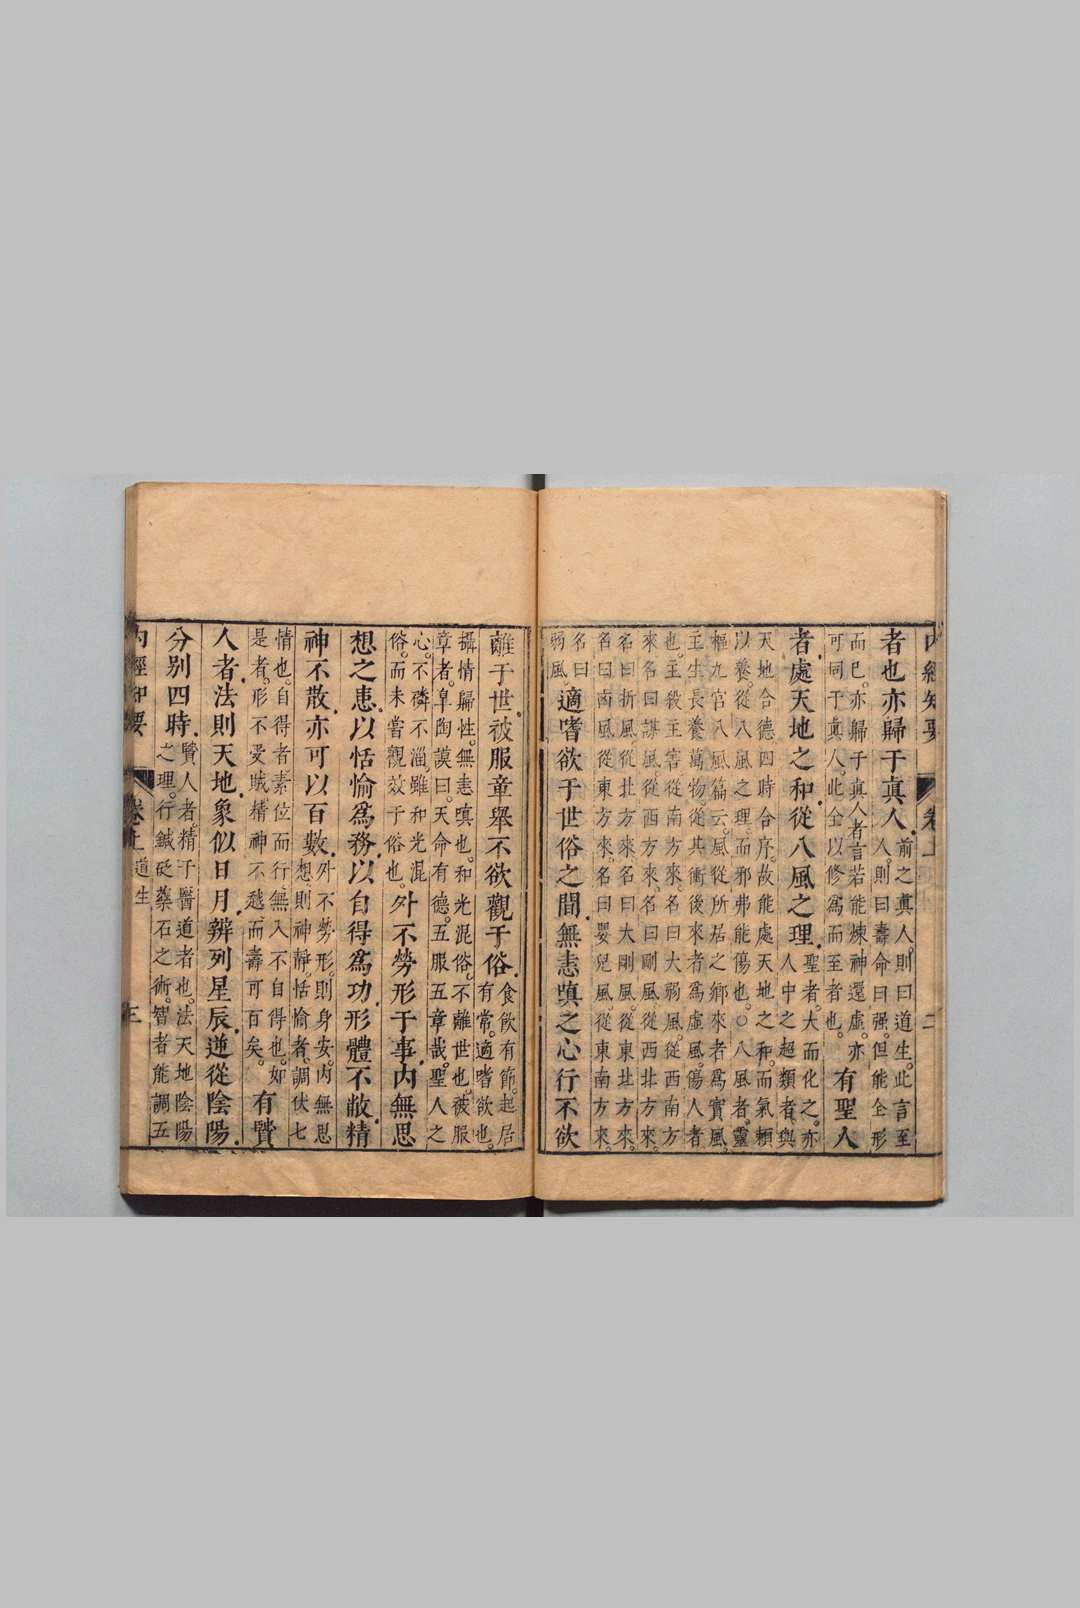 內經知要 卷上 二
者也亦歸于真人。前之真人則曰道生。此言至
人。則曰壽命曰强。但能全形
而已。亦歸于真人者。言若能煉神還虛。亦
可同于真人。此全以修爲而至者也。有聖人
者。處天地之和。從八風之理。聖者。大而化之。亦
人中之超類者。與
天地合德。四時合序。故能處天地之和。而氣賴
以養。從八風之理。而邪弗能傷也。○八風者。靈
樞九宮八風篇云。風從所居之鄉來者爲實風。
主生長養萬物。從其衝後來者爲虛風。傷人者
也。主殺主害。從南方來。名曰大弱風。從西南方
來。名曰謀風。從西方來。名曰剛風。從西北方來。
名曰折風。從北方來。名曰大剛風。從東北方來。
名曰凶風。從東方來。名曰嬰兒風。從東南方來。
名曰
弱風。適嗜欲于世俗之間。無恚嗔之心。行不欲
離于世。被服章。舉不欲觀于俗。食飲有節。起居
有常。適嗜欲也。
攝情歸性。無恚嗔也。和光混俗。不離世也。被服
章者。皐陶謨曰。天命有德。五服五章哉。聖人之
心。不磷不淄。雖和光混
俗。而未嘗觀效于俗也。外不勞形于事。內無思
想之患。以恬愉爲務。以自得爲功。形體不敝。精
神不散。亦可以百數。外不勞形。則身安。內無思
想則神靜。恬愉者。調伏七
情也。自得者。素位而行。無入不自得也。如
是者。形不受賊。精神不越。而壽可百矣。有賢
人者。法則天地。象似日月。辨列星辰。逆從陰陽。
分别四時。賢人者。精于醫道者也。法天地陰陽
之理。行鍼砭藥石之術。智者能調五
內經知要 卷上 道生 三